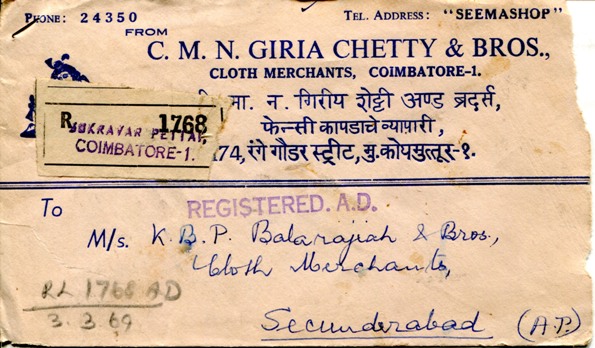 PHONE: 24350
TEL. ADDRESS: "SEEMASHOP"
FROM
C. M. N. GIRIA CHETTY & BROS.,
CLOTH MERCHANTS, COIMBATORE-1.
मा. न. गिरीय शेट्टी अण्ड ब्रदर्स,
फेन्सी कापडाचे व्यापारी,
174, रंगे गौडर स्ट्रीट, मु. कोयमुत्तूर-१.
R 1768
SUKRAVAR PETTAI,
COIMBATORE-1.
REGISTERED. A.D.
To
M/s. K. B. P. Balarajiah & Bros.,
Cloth Merchants,
Secunderabad (A.P.)
RL 1768 AD
3.3.69